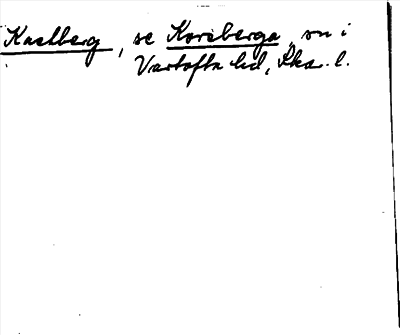 Kaelberg, se Korsberga sn i
Vartofta hd, Ska. l.